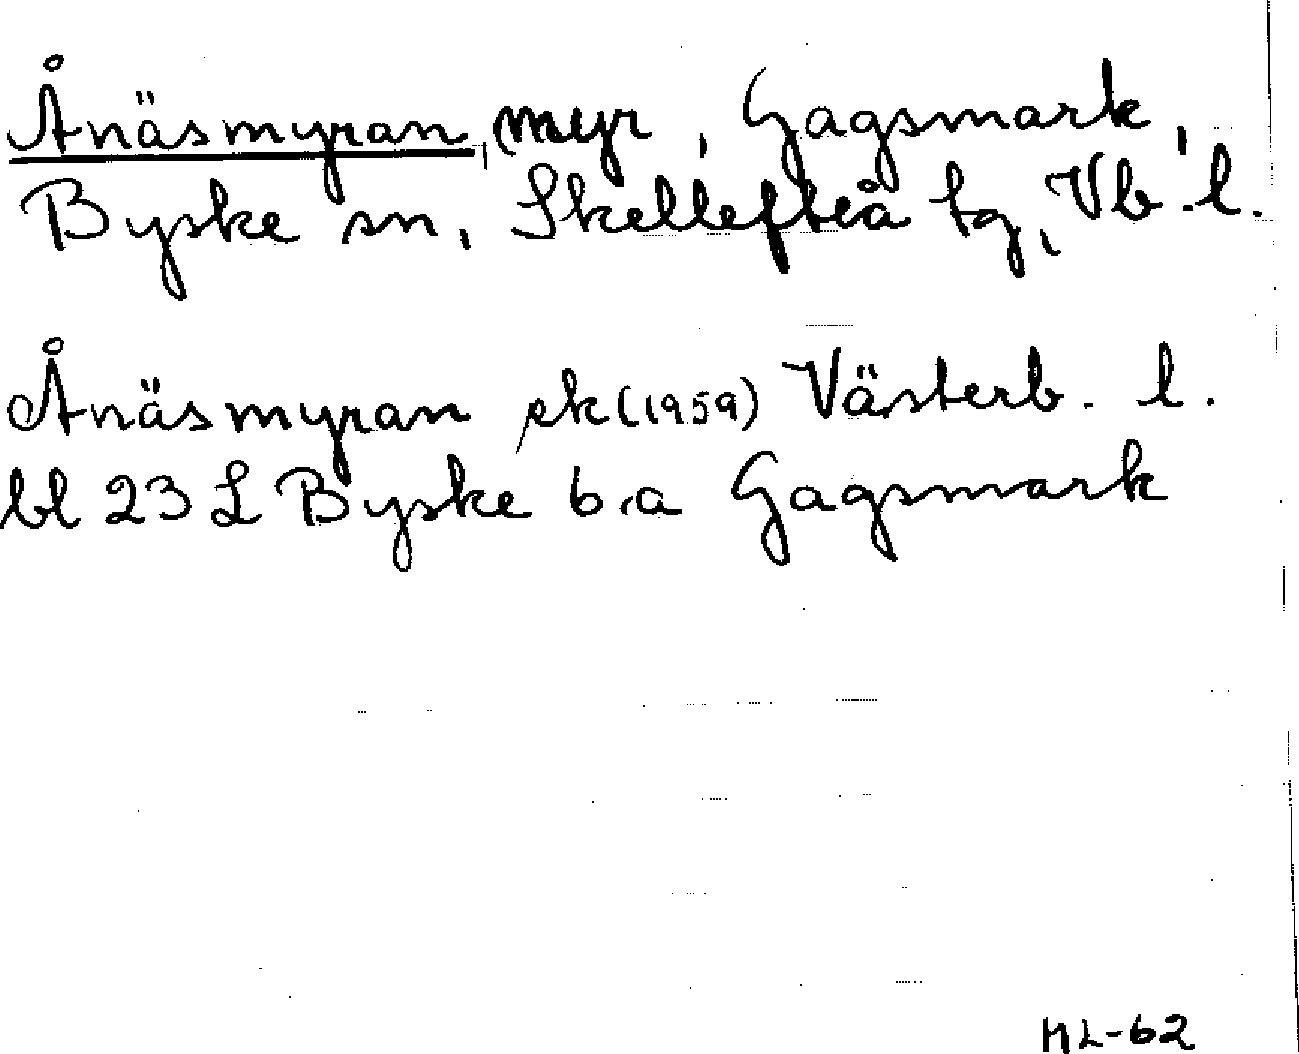 Ånäsmyran, myr, Gagsmark,
Byske sn, Skellefteå tg, Vb. l.
Ånäsmyran ek (1959) Västerb. l.
bl 23 L Byske 6.a Gagsmark
ML-62